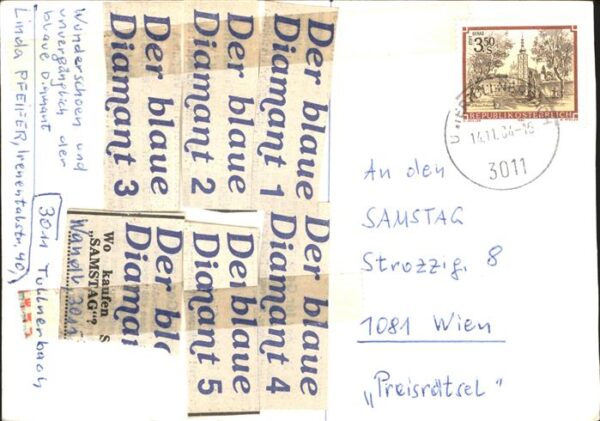 Wunderschoen und
unvergänglich der
blaue Diamant
Linda PFEIFER, Irenentalstr. 40,
3011 Tullnerbach
Der blaue
Diamant 3
Der blaue
Diamant 2
Der blaue
Diamant 1
Wo kaufen S
„SAMSTAG“?
Wandl, 3011
Der bl
Diaman
Der blaue
Diamant 5
Der blaue
Diamant 4
3.50
REPUBLIK ÖSTERREICH
14.11.84-16
3011
An den
SAMSTAG
Strozzig. 8
1081 Wien
„Preisrätsel“